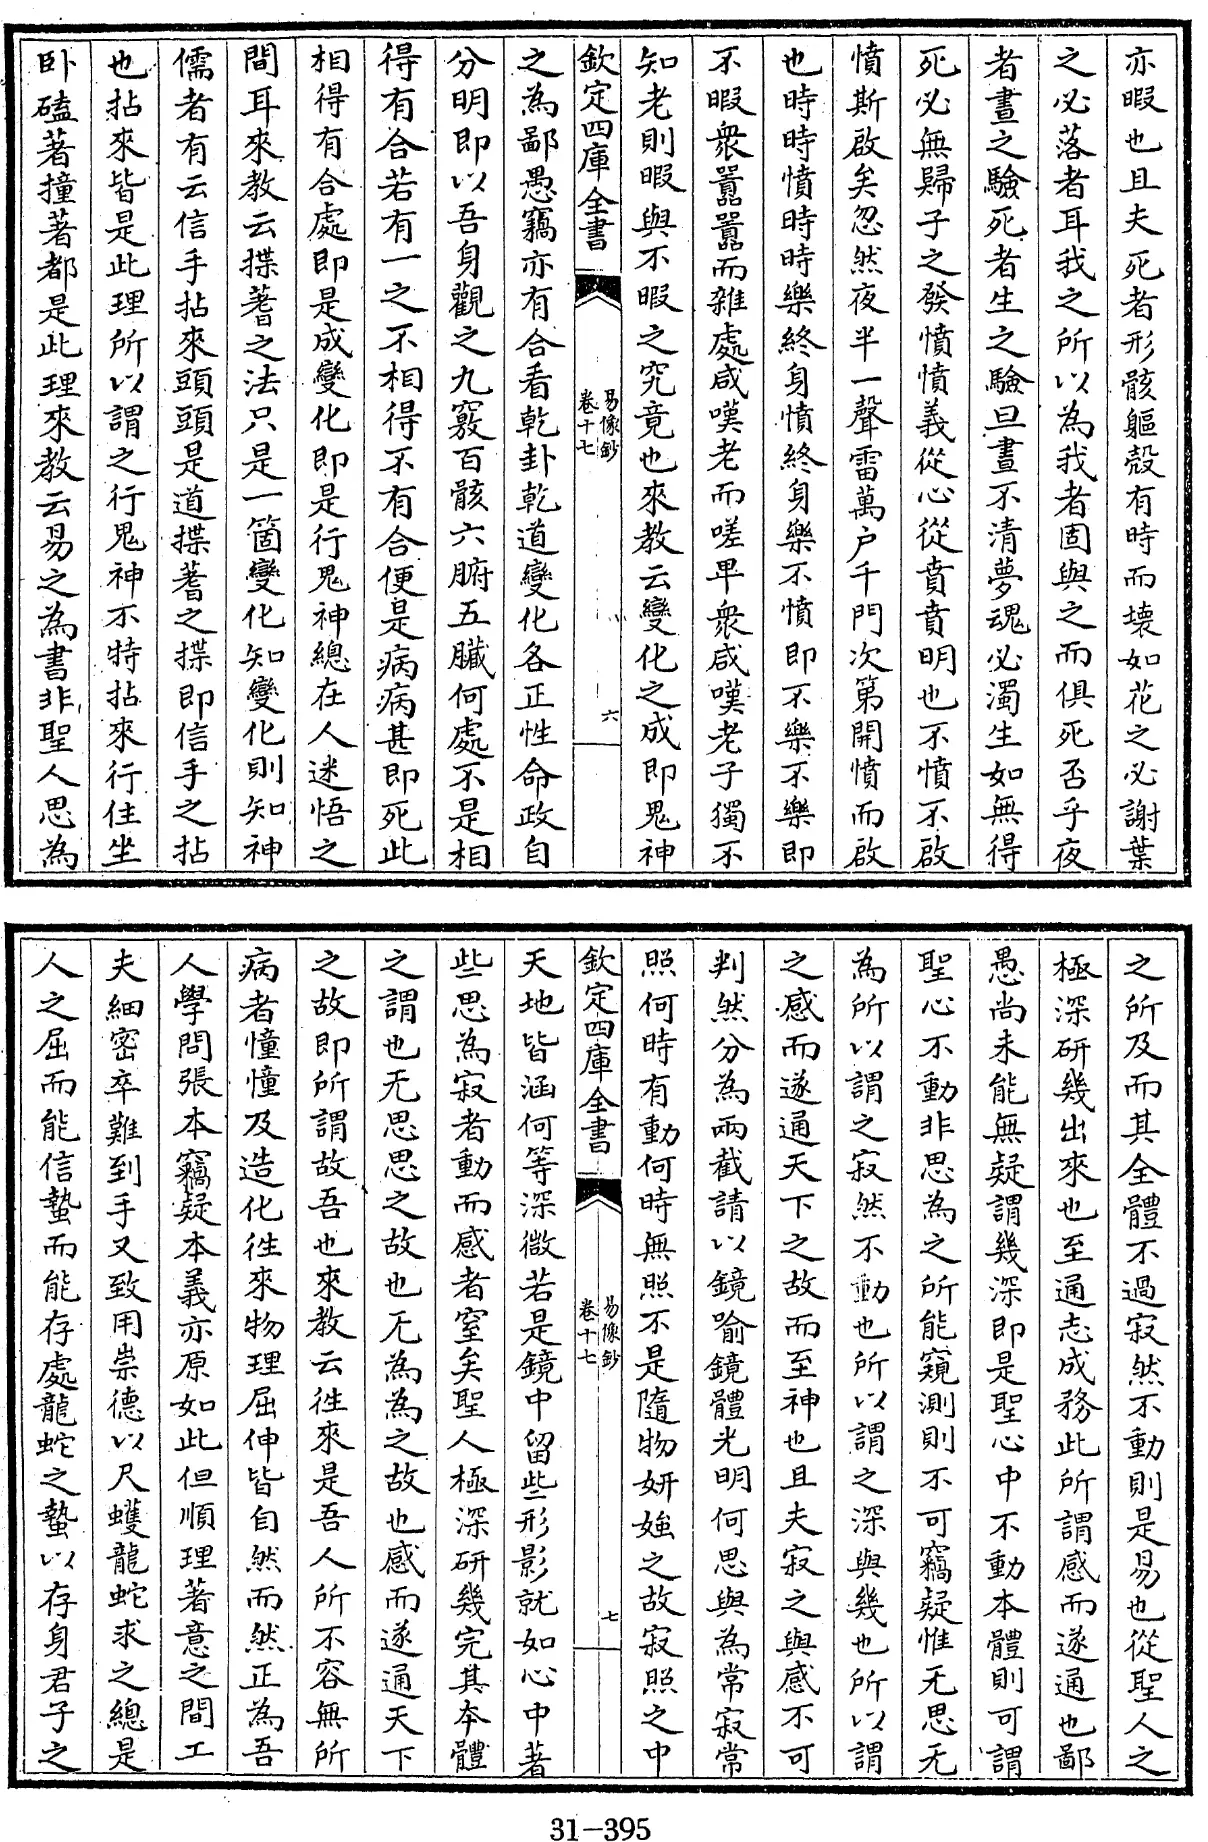 亦暇也且夫死者形骸軀殼有時而壞如花之必謝葉
之必落者耳我之所以為我者固與之而俱死否乎夜
者晝之驗死者生之驗旦晝不清夢魂必濁生如無得
死必無歸子之發憤憤義從心從賁賁明也不憤不啟
憤斯啟矣忽然夜半一聲雷萬户千門次第開憤而啟
也時時憤時時樂終身憤終身樂不憤即不樂不樂即
不暇衆囂囂而雜處咸嘆老而嗟卑衆咸嘆老子獨不
知老則暇與不暇之究竟也來教云變化之成即鬼神
欽定四庫全書
易像鈔
卷十七
六
之為鄙愚竊亦有合看乾卦乾道變化各正性命政自
分明即以吾身觀之九竅百骸六腑五臟何處不是相
得有合若有一之不相得不有合便是病病甚即死此
相得有合處即是成變化即是行鬼神總在人迷悟之
間耳來教云揲蓍之法只是一箇變化知變化則知神
儒者有云信手拈來頭頭是道揲蓍之揲即信手之拈
也拈來皆是此理所以謂之行鬼神不特拈來行住坐
卧磕著撞著都是此理來教云易之為書非聖人思為
之所及而其全體不過寂然不動則是易也從聖人之
極深研幾出來也至通志成務此所謂感而遂通也鄙
愚尚未能無疑謂幾深即是聖心中不動本體則可謂
聖心不動非思為之所能窺測則不可竊疑惟无思无
為所以謂之寂然不動也所以謂之深與幾也所以謂
之感而遂通天下之故而至神也且夫寂之與感不可
判然分為兩截請以鏡喻鏡體光明何思與為常寂常
照何時有動何時無照不是隨物妍媸之故寂照之中
欽定四庫全書
易像鈔
卷十七
七
天地皆涵何等深微若是鏡中留些形影就如心中著
些思為寂者動而感者窒矣聖人極深研幾完其本體
之謂也无思思之故也无為為之故也感而遂通天下
之故即所謂故吾也來教云徃來是吾人所不容無所
病者憧憧及造化徃來物理屈伸皆自然而然正為吾
人學問張本竊疑本義亦原如此但順理著意之間工
夫細密卒難到手又致用崇德以尺蠖龍蛇求之總是
人之屈而能信蟄而能存處龍蛇之蟄以存身君子之
31-395